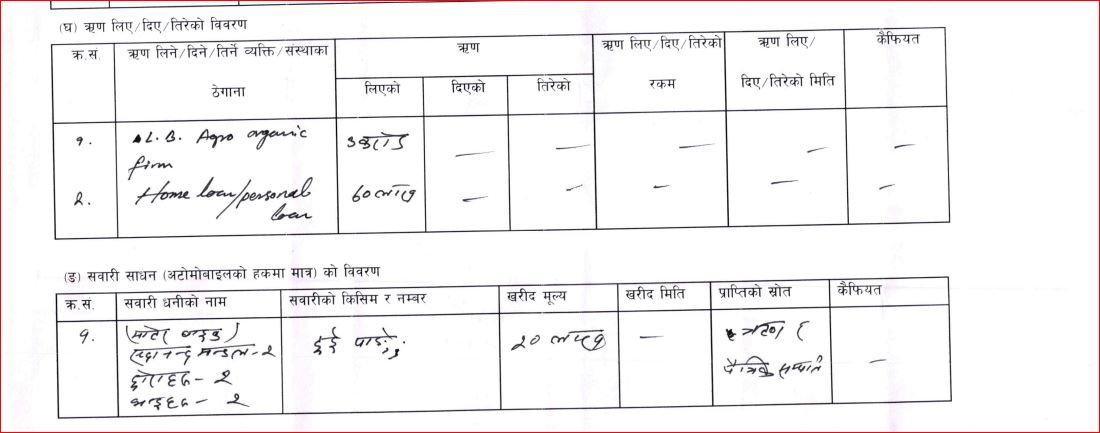 (घ) ऋण लिए/दिए/तिरेको विवरण
क्र.सं. ऋण लिने/दिने/तिर्ने व्यक्ति/संस्थाका ठेगाना ऋण ऋण लिए/दिए/तिरेको रकम ऋण लिए/दिए/तिरेको मिति कैफियत
लिएको दिएको तिरेको
१. L.B. Agro organic firm ३ करोड — — — — —
२. Home loan/personal loan ६० लाख — — — — —
(ङ) सवारी साधन (अटोमोबाइलको हकमा मात्र) को विवरण
क्र.सं. सवारी धनीको नाम सवारीको किसिम र नम्बर खरीद मूल्य खरीद मिति प्राप्तिको स्रोत कैफियत
१. (मोटर बाइक) दुई २० लाख — ऋण र —
सदानन्द मण्डल-२ पैत्रिक सम्पत्ति
छोराहरु - २
भाइहरु - २